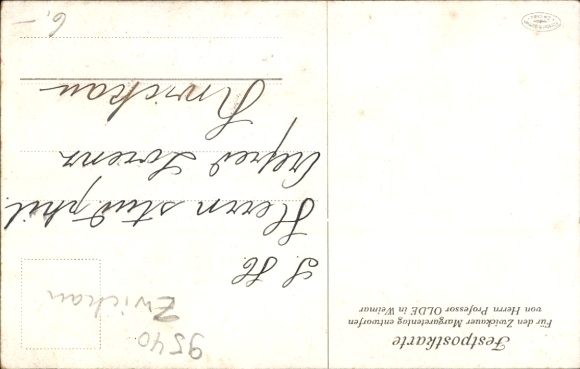 Festpostkarte
Für den Zwickauer Margaretentag entworfen
von Herrn Professor OLDE in Weimar
S. H.
Herrn stud. phil.
Alfred Lorenz
Zwickau
9540
Zwickau
6,–